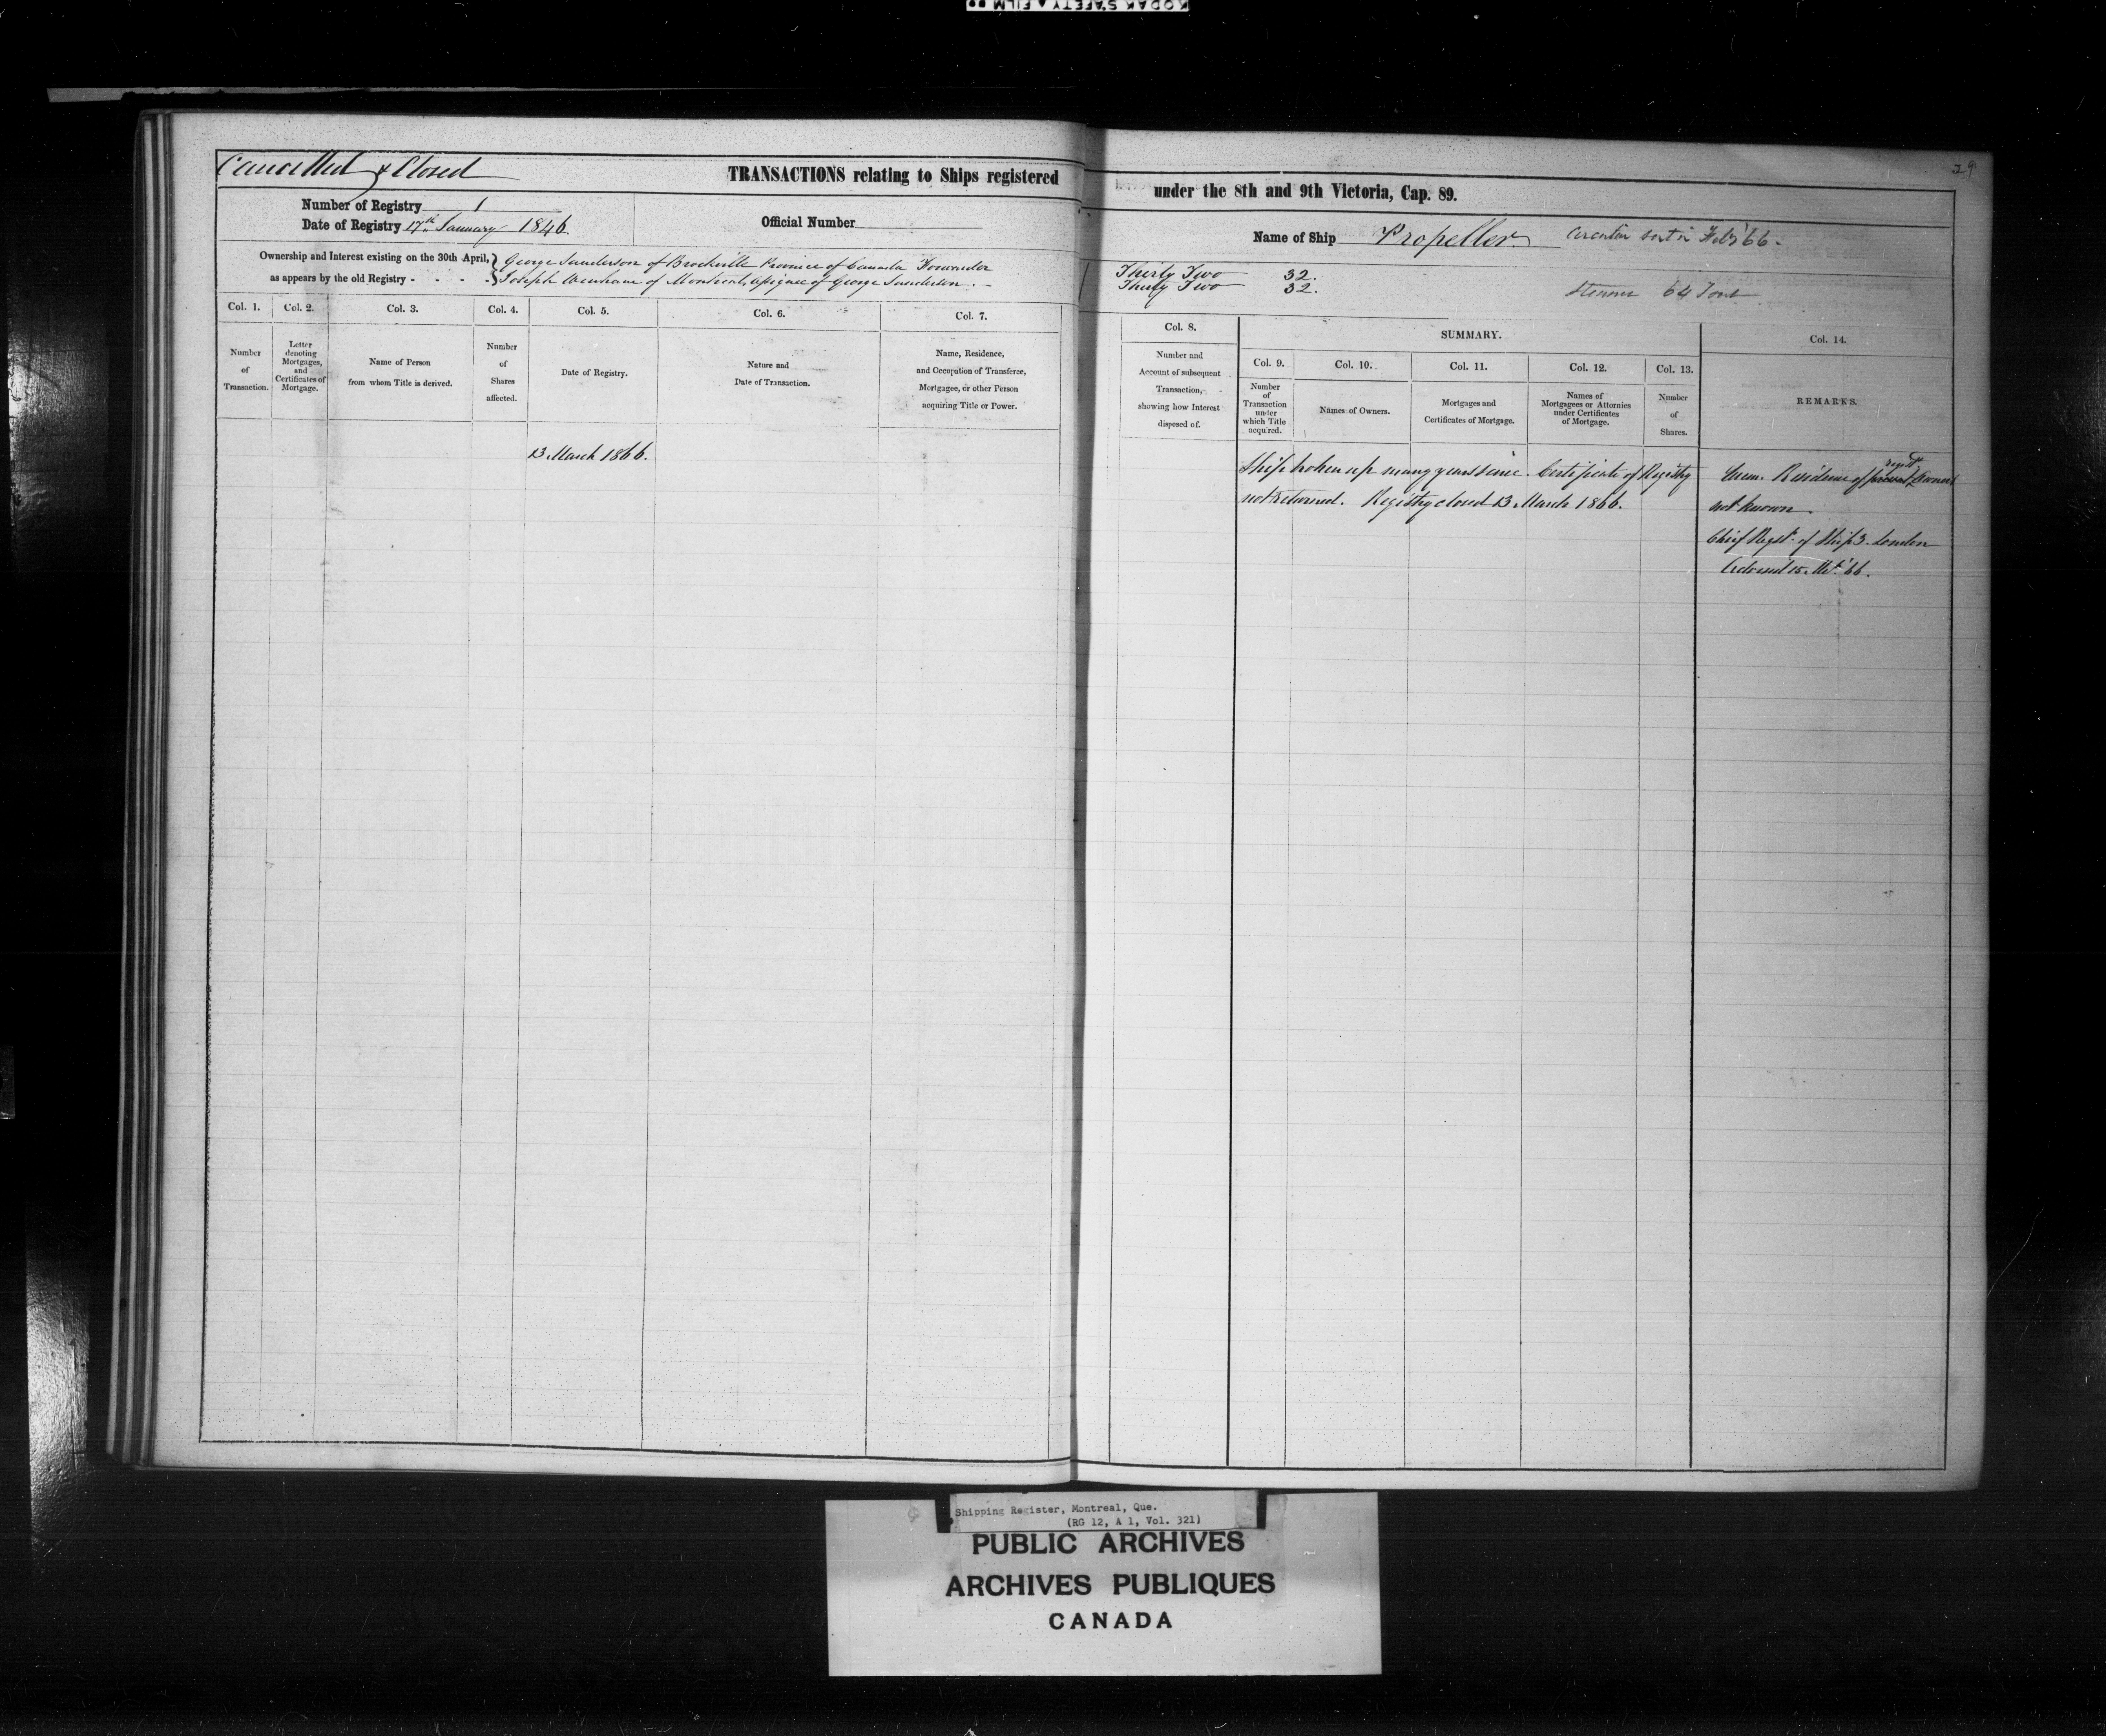 KODAK SAFETY FILM
29
Cancelled & Closed
TRANSACTIONS relating to Ships registered under the 8th and 9th Victoria, Cap. 89.
Number of Registry 1
Date of Registry 17th January 1846.
Official Number
Name of Ship Propeller. Circular sent in Feby '66.
Ownership and Interest existing on the 30th April, as appears by the old Registry - - - -
George Sanderson of Brockville Province of Canada Forwarder Thirty Two 32.
Joseph Wenham of Montreal, Assignee of George Sanderson. Thirty Two 32.
Steamer 64 Tons
Col. 1.
Number of Transaction.
Col. 2.
Letter denoting Mortgages, and Certificates of Mortgage.
Col. 3.
Name of Person from whom Title is derived.
Col. 4.
Number of Shares affected.
Col. 5.
Date of Registry.
Col. 6.
Nature and Date of Transaction.
Col. 7.
Name, Residence, and Occupation of Transferee, Mortgagee, or other Person acquiring Title or Power.
Col. 8.
Number and Account of subsequent Transaction, showing how Interest disposed of.
SUMMARY.
Col. 9.
Number of Transaction under which Title acquired.
Col. 10.
Names of Owners.
Col. 11.
Mortgages and Certificates of Mortgage.
Col. 12.
Names of Mortgagees or Attornies under Certificates of Mortgage.
Col. 13.
Number of Shares.
Col. 14.
REMARKS.
13 March 1866.
Ship broken up many years since. Certificate of Registry
not returned. Registry closed 13 March 1866.
Mem. Residence of Owners
not known.
Chief Regst. of Ships. London
Advised 15 Mch '66.
Shipping Register, Montreal, Que.
(RG 12, A 1, Vol. 321)
PUBLIC ARCHIVES
ARCHIVES PUBLIQUES
CANADA